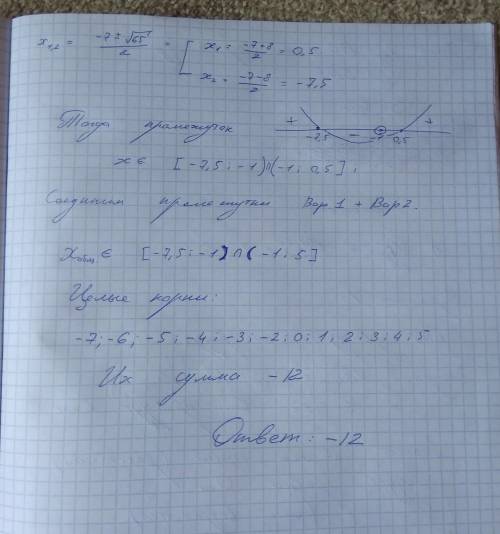 x₁,₂ = (-7 ± √65)/2 = [ x₁ = (-7+8)/2 = 0,5
x₂ = (-7-8)/2 = -7,5
Тогда промежуток
+ − +
-7,5 -1 0,5
x ∈ [-7,5; -1)∩(-1; 0,5];
Соединим промежутки Вар 1 + Вар 2.
xобщ ∈ [-7,5; -1)∩(-1; 5]
Целые корни:
-7; -6; -5; -4; -3; -2; 0; 1; 2; 3; 4; 5
Их сумма -12
Ответ: -12